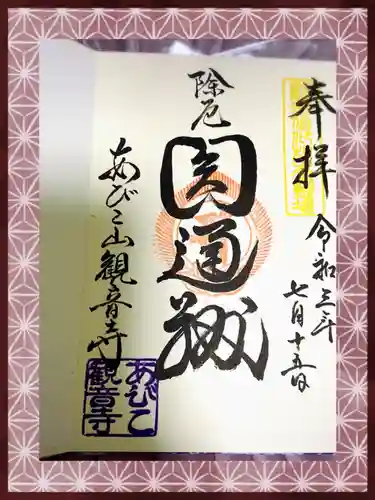 奉拝
令和三年
七月十五日
除厄
圓通
あびこ山観音寺
あびこ
観音寺